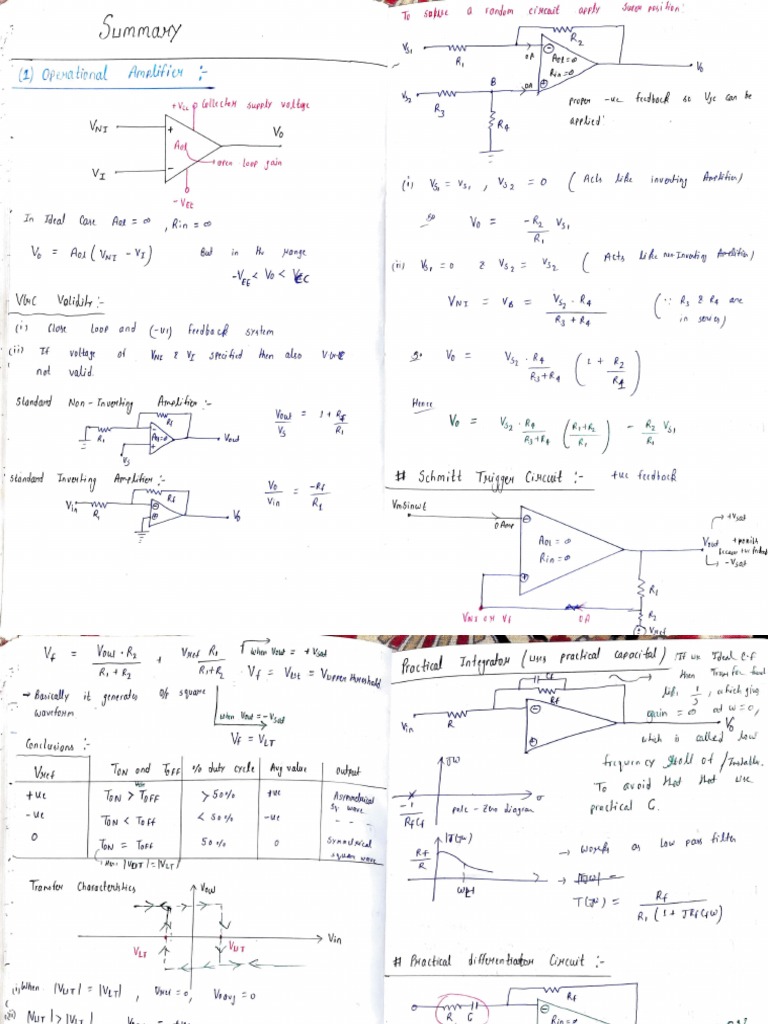 Summary
(1) Operational Amplifier :-
+Vcc Collector supply voltage
VNI
+
AOL
Vo
open loop gain
VI
-
-VEE
In Ideal Case AOL = ∞ , Rin = ∞
Vo = AOL (VNI - VI) But in the range
-VEE < Vo < VCC
Validity :-
(i) Close loop and (-ve) feedback system
(ii) If voltage of VNI & VI specified then also
not valid.
Standard Non-Inverting Amplifier :-
Rf
R1
AOL=∞
Vout
Vs
Vout/Vs = 1 + Rf/R1
Standard Inverting Amplifier :-
Vin
R1
Rf
Vo
Vo/Vin = -Rf/R1
To solve a random circuit apply superposition:
R2
VS1
R1
0A
AOL=∞
Rin=∞
Vo
VS2
R3
B
0A
R4
proper -ve feedback so can be
applied
(i) VS1 = VS1 , VS2 = 0 (Acts like inverting Amplifier)
So Vo = -R2/R1 VS1
(ii) VS1 = 0 & VS2 = VS2 (Acts like non-Inverting Amplifier)
VNI = VB = VS2 · R4/R3 + R4 (∵ R3 & R4 are
in series)
So Vo = VS2 · R4/R3+R4 (1 + R2/R1)
Hence
Vo = VS2 · R4/R3+R4 (R1+R2/R1) - R2/R1 VS1
# Schmitt Trigger Circuit :- +ve feedback
Vmsinwt
0Amp
AOL = ∞
Rin = ∞
+Vsat
Vout
-Vsat
R1
VNI or Vf
0A
R2
Vref
Vf = Vout · R2/R1 + R2 + Vref R1/R1+R2
when Vout = +Vsat
Vf = VUT = Vupper threshold
→ Basically it generates square
waveform
when Vout = -Vsat
Vf = VLT
Conclusions :-
Vref TON and TOFF % duty cycle Avg value output
+ve TON > TOFF > 50% +ve Asymmetrical
sq wave
-ve TON < TOFF < 50% -ve - - -
0 TON = TOFF 50% 0 Symmetrical
square wave
|VUT| = |VLT|
Transfer Characteristics
Vout
Vin
VLT
VUT
(i) When |VUT| = |VLT| , Vref = 0, Vavg = 0
(ii) |VUT| > |VLT|
Practical Integrator (uses practical capacitor)
If we Ideal
then Transfer fun
1/s , which give
gain = ∞ at w=0,
which is called low
frequency
To avoid that use
practical C.
Cf
Rf
Vin
R
Vo
jw
σ
-1/RfCf
pole - zero diagram
|T(jw)|
Rf/R
→ works as low pass filter
T(jw) = Rf/R1 (1 + JRfCfw)
# Practical differentiator Circuit :-
Rf
R
C
AOL=∞
Rin=∞